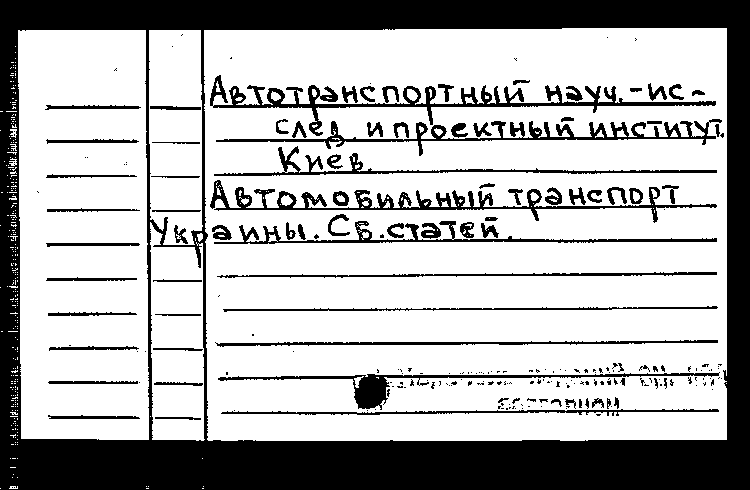 Автотранспортный науч.-ис-
след. и проектный институт.
Киев.
Автомобильный транспорт
Украины. Сб. статей.